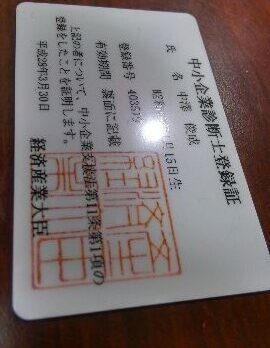 中小企業診断士登録証
氏 名 中澤 俊成
昭和 月15日生
登録番号 403519
有効期間 裏面に記載
上記の者について、中小企業支援法第11条第1項の
登録をしたことを証明します。
平成28年3月30日
経済産業大臣